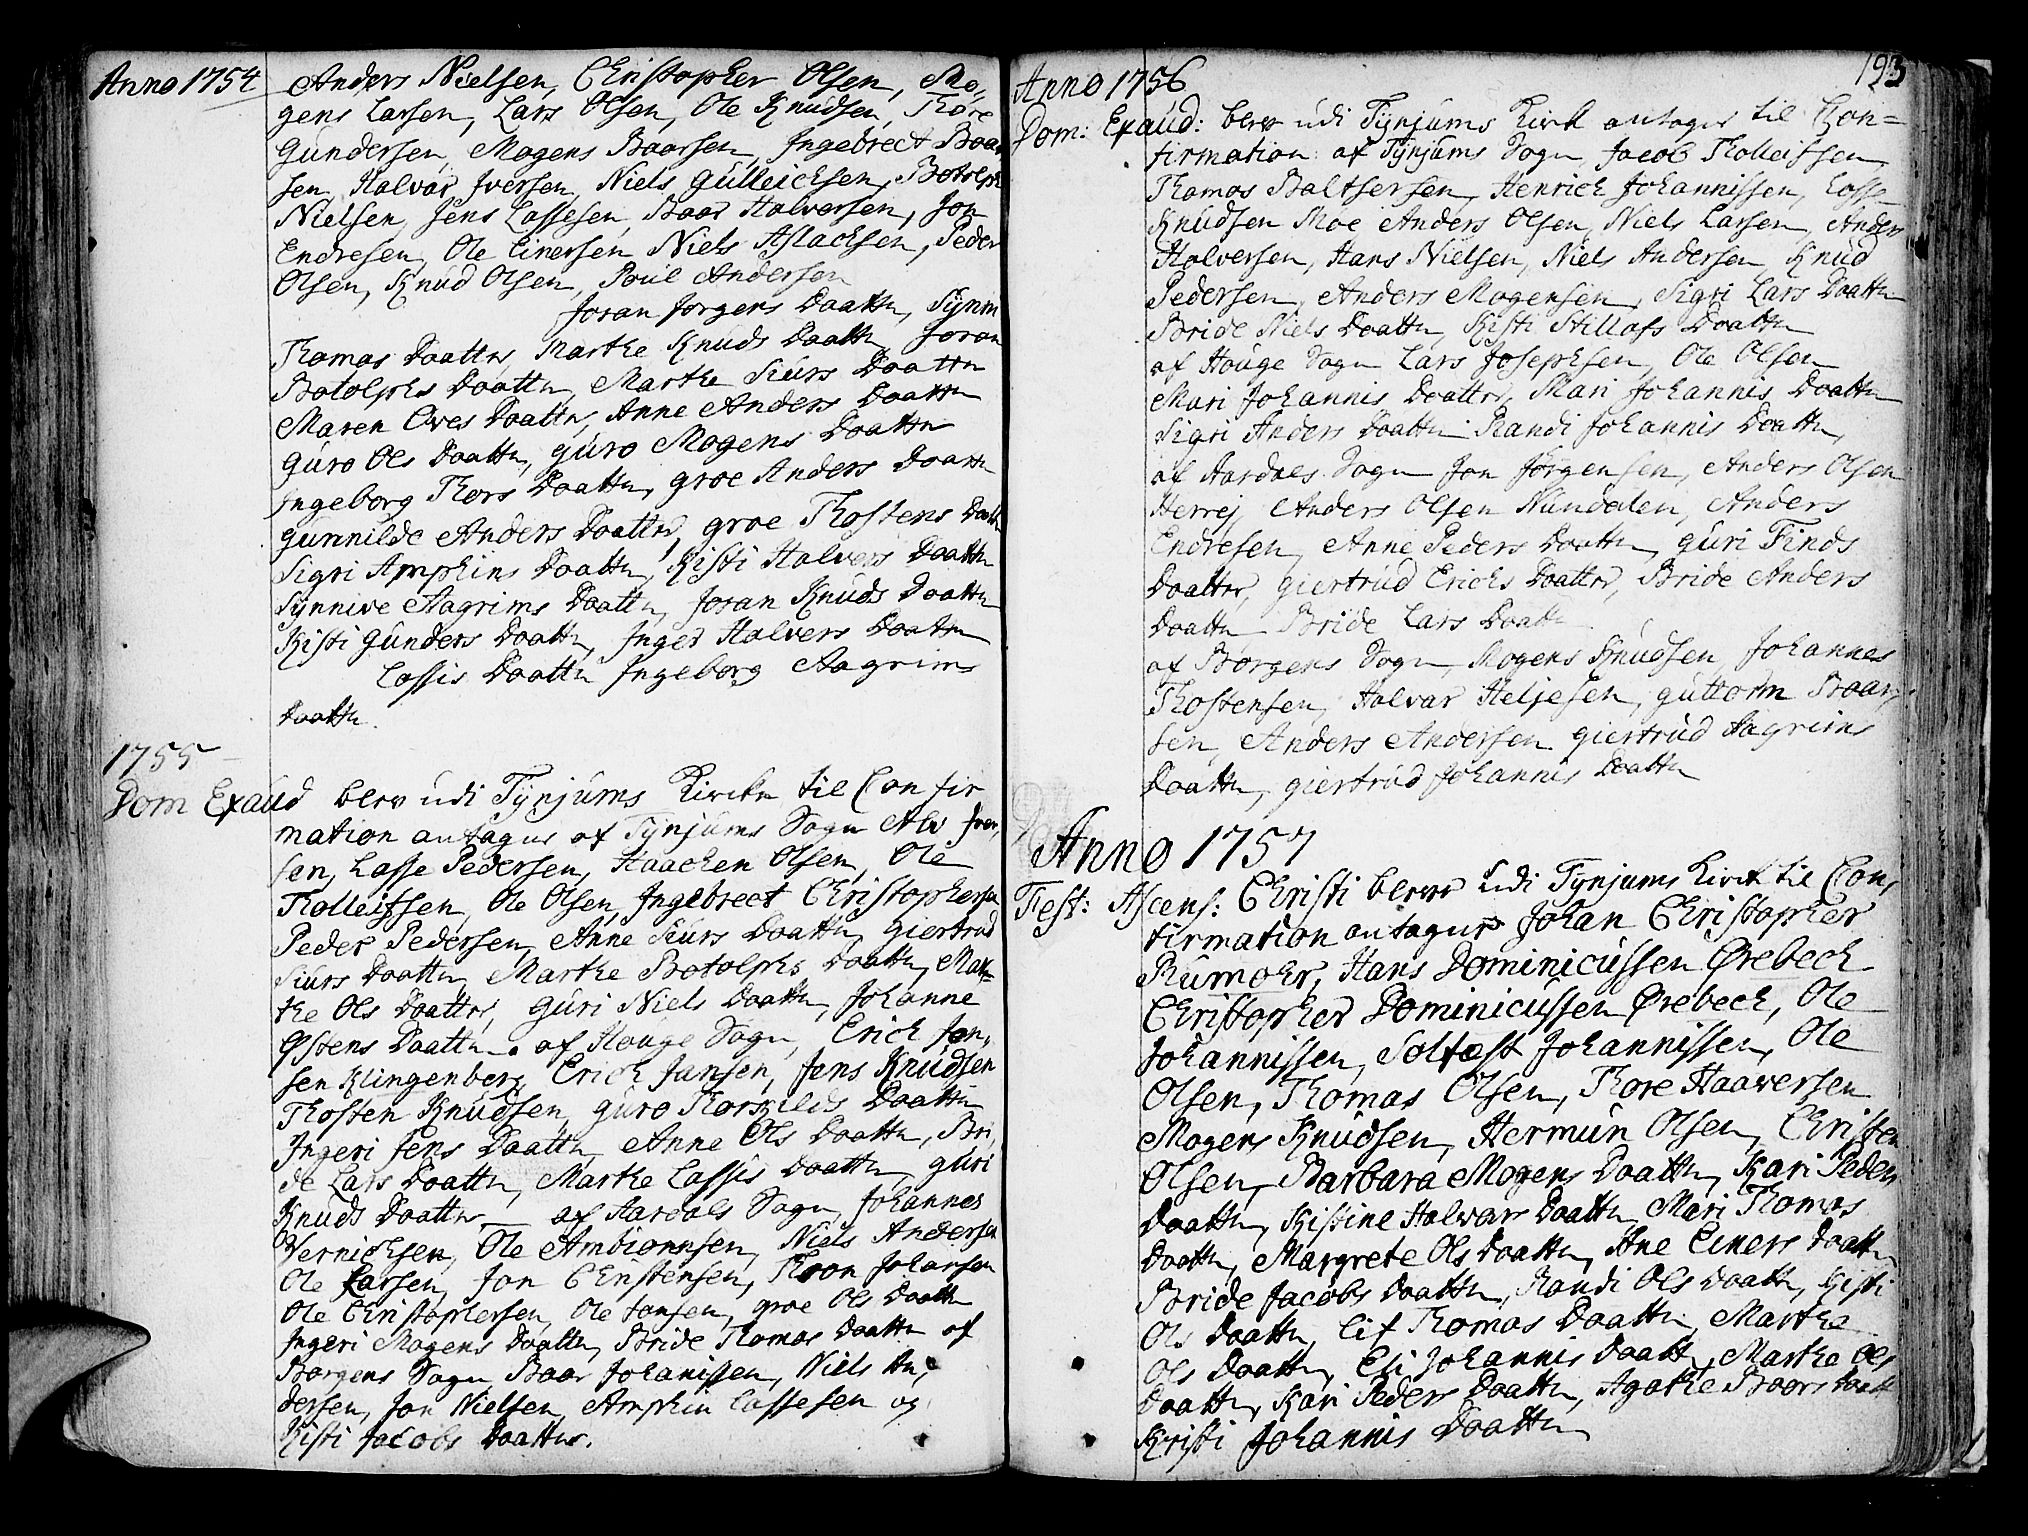 Anno 1754
Anders Nielsen, Christopher Olsen, Mo,
gens Larsen, Lars Olsen, Ole Knudsen, Thore
Gundersen, Mogens Baarsen, Ingebrect Baar
sen, Halvar Iversen, Niels Gulleichsen, Botolph
Nielsen, Jens Lassesen, Baar Halversen, Jon
Endresen, Ole Einersen Niels Aslachsen, Peder
Olsen, Knud Olsen, Poul Andersen
Joran Jorgens Daatter, Synni
Thomas Daatter, Marthe Knuds Daatter, Joran
Botolphs Daatter, Marthe Siurs Daatter
Maren Oves Daatter, Anne Anders Daatter
Guro Ols Daatter, Guro Mogens Daatter
Ingeborg Thors Daatter, groe Anders Daatter
Gunnilde Anders Daatter, groe Thostens Daatter
Sigri Amphins Daatter, Kisti Halvers Daatter
Synnive Aagrims Daatter, Joran Knuds Daatter
Kisti Gunders Daatter, Inger Halvers Daatter
Lassis Daatter Ingeborg Aagrims
Daatter.
1755
Dom Exaud blev udi Tynjums Kircke til Confir
mation antagne af Tynjums Sogn Alv Iver,
sen, Lasse Pedersen, Haachen Olsen, Ole
Tholleifsen, Ole Olsen, Ingebrect Christophersen
Peder Pedersen, Anne Siurs Daatter, Giertrud
Siurs Daatter, Marthe Botolphs Daatter, Mar=
the Ols Daatter, Guri Niels Daatter, Johanne
Østens Daatter. af Houge Sogn, Erich Jon,
sen Klingenberg, Erich Jansen, Jens Knudsen
Thosten Knudsen, Guro Thorkilds Daatter
Ingeri Jens Daatter, Anne Ols Daatter, Bri,
de Lars Daatter, Marthe Lassis Daatter, Guri
Knuds Daatter af Aardals Sogn, Johannes
Vernichsen, Ole Ambiønnsen, Niels Andersen
Ole Larsen, Jon Christensen, Thron Johansen
Ole Christophersen, Ole Jonsen, groe Ols Daatter
Ingeri Mogens Daatter, Bride Thomas Daatter af
Borgens Sogn Baar Johanissen, Niels An,
dersen, Jon Nielsen, Amphin Lassesen og
Kisti Jacobs Daatter.
193
Anno 1756
Dom: Exaud: blev udi Tynjums Kirck antagne til Con=
firmation af Tynjums Sogn, Jacob Tholleifsen
Thomas Baltsersen, Henrich Johannissen, Lasse
Knudsen Moe Anders Olsen, Niels Larsen, Anders
Halversen, Hans Nielsen, Niels Andersen, Knud
Pedersen, Anders Mogensen, Sigri Lars Daatter
Bride Niels Daatter, Kisti Stillafs Daatter
af Houge Sogn Lars Josephsen, Ole Olsen
Mari Johannis Daatter, Mari Johannis Daatter
Sigri Anders Daatter Randi Johannis Daatter,
af Aardals Sogn Jon Jørgensen, Anders Olsen
Herrej, Anders Olsen Nundalen, Anders
Endresen, Anne Peders Daatter, Guri Finds
Daatter, Giertrud Erichs Daatter, Bride Anders
Daatter Bride Lars Daatter
af Borgens Sogn, Mogens Knudsen, Johannes
Thostensen, Halvar Heljesen, Guttorm Baar,
sen, Anders Andersen Giertrud Aagrims
Daatter, Giertrud Johannis Daatter
Anno 1757
Fest: Ascens: Christi blev udi Tynjums Kirck til Con,
firmation antagne Johan Christopher
Rumohr, Hans Dominicussen Ørebech
Christopher Dominicussen Ørebech, Ole
Johannissen, Solfæst Johannissen, Ole
Olsen, Thomas Olsen, Thore Haaversen
Mogens Knudsen, Hermun Olsen, Christen
Olsen, Barbara Mogens Daatter, Kari Peders
Daatter, Kistine Halvars Daatter, Mari Thomas
Daatter, Margrete Ols Daatter, Ane Einers Daatter
Bride Jacobs Daatter, Randi Ols Daatter, Kisti
Ols Daatter, Lif Thomas Daatter, Marthe
Ols Daatter, Eli Johannis Daatter, Marthe Ols
Daatter, Kari Peders Daatter, Agathe Baars Daatt
Kristi Johannis Daatter